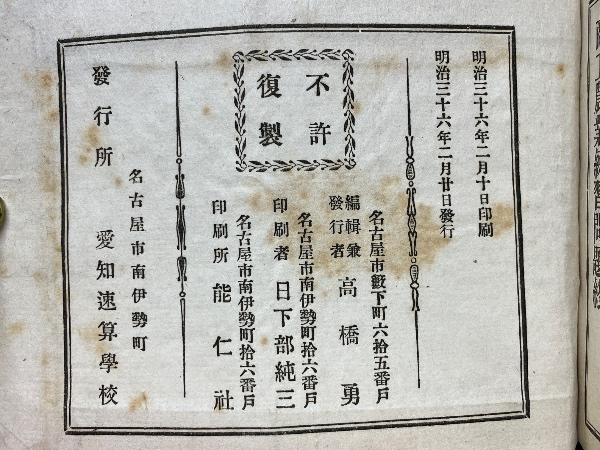 明治三十六年二月十日印刷
明治三十六年二月廿日發行
不許
復製
名古屋市藪下町六拾五番戸
編輯兼
發行者
高橋勇
名古屋市南伊勢町拾六番戸
印刷者 日下部純三
名古屋市南伊勢町拾六番戸
印刷所 能仁社
名古屋市南伊勢町
發行所 愛知速算學校